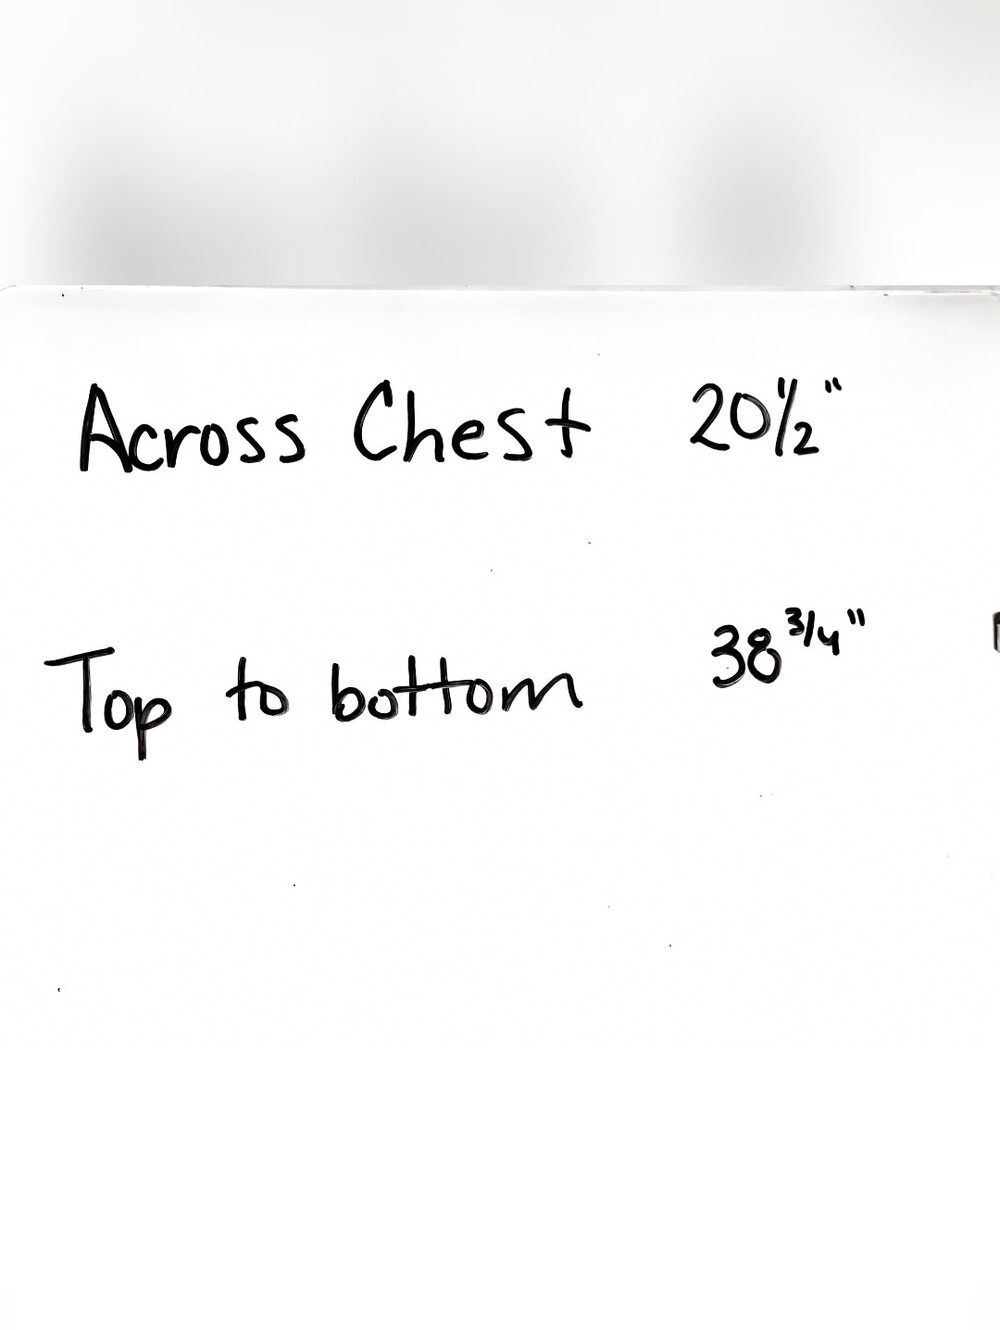 Across Chest 20½"
Top to bottom 38 3/4"